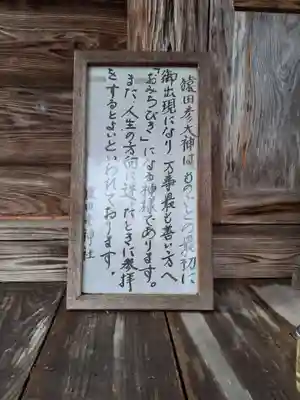 猿田彦大神はものごとの最初に
御出現になり万事最も善い方へ
「おみちびき」になる神様であります。
また、人生の方向に迷ったときに参拝
をするとよいといわれております
猿田彦神社